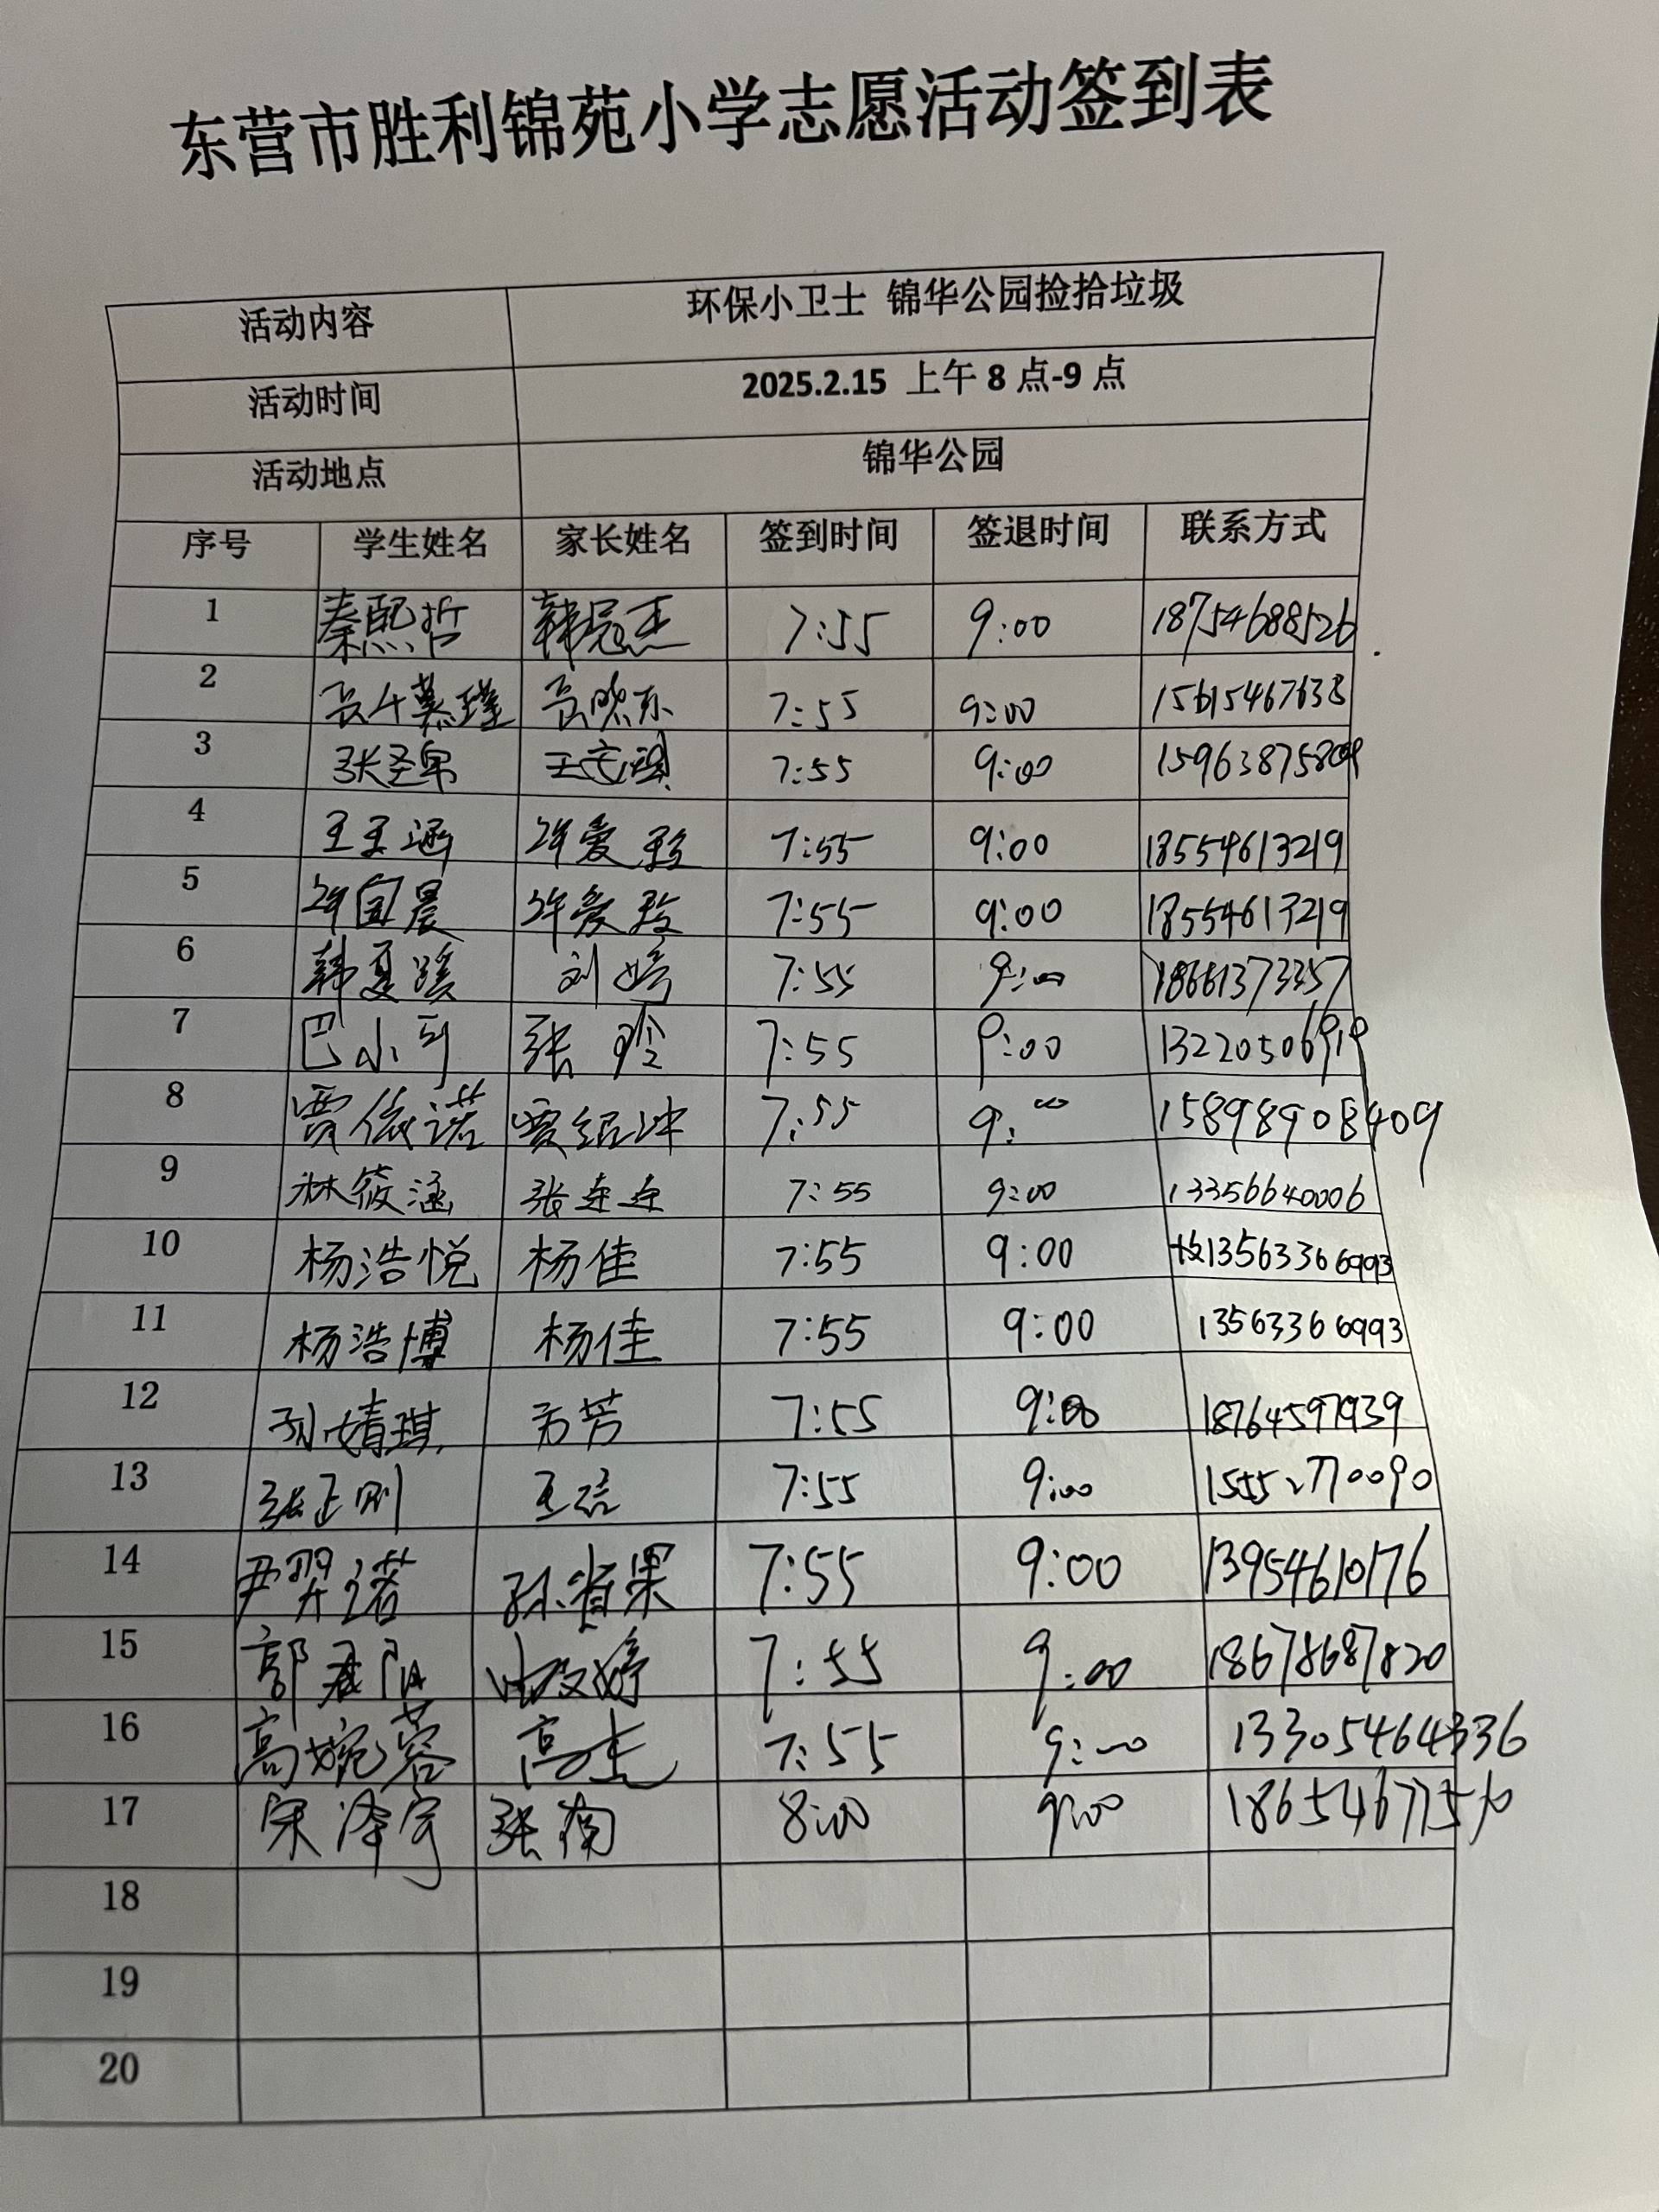 东营市胜利锦苑小学志愿活动签到表
活动内容 环保小卫士 锦华公园捡拾垃圾
活动时间 2025.2.15 上午8点-9点
活动地点 锦华公园
序号 学生姓名 家长姓名 签到时间 签退时间 联系方式
1 秦熙哲 7:55 9:00 18754688526
2 7:55 9:00 15615467638
3 7:55 9:00
4 7:55 9:00 18554613219
5 7:55 9:00 18554613219
6 韩夏溪 刘婷 7:55 9:00
7 巴小可 张玲 7:55 9:00 13220506919
8 贾依诺 7:55 9:00 15898908409
9 林筱涵 张连连 7:55 9:00 13356640006
10 杨浩悦 杨佳 7:55 9:00 13563366993
11 杨浩博 杨佳 7:55 9:00 13563366993
12 孙婧琪 7:55 9:00 18764597939
13 张正刚 7:55 9:00 15552770090
14 尹羿诺 7:55 9:00 13954610176
15 7:55 9:00 18678687820
16 高婉蓉 7:55 9:00 13305464336
17 宋泽宇 张南 8:00 9:00
18
19
20